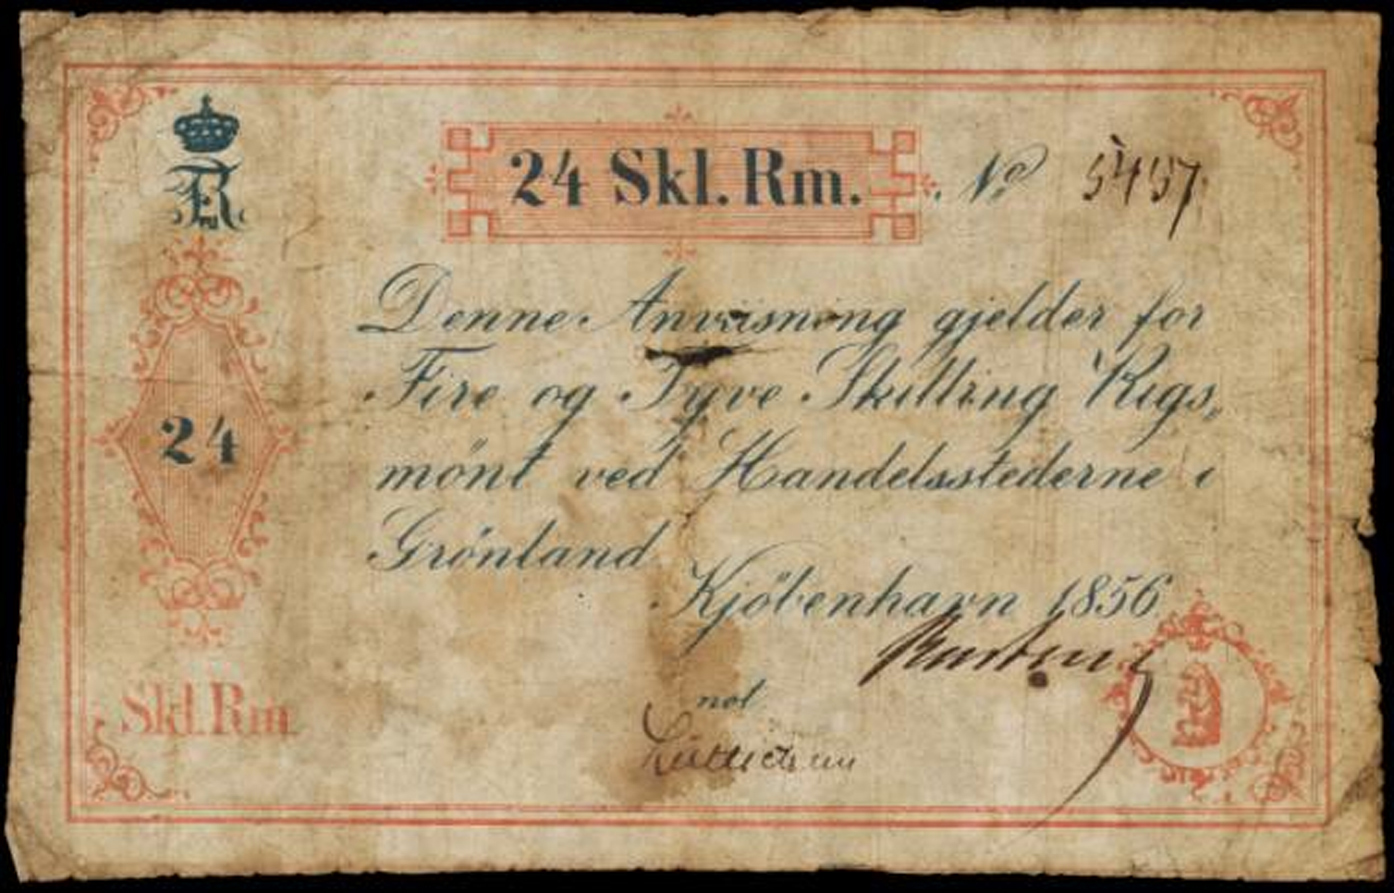 24 Skl. Rm. No 5457
Denne Anviisning gjelder for
Fire og Tyve Skilling Rigs,
24
mönt ved Handelsstederne i
Grönland
Kjöbenhavn 1856
Skl. Rm.
not